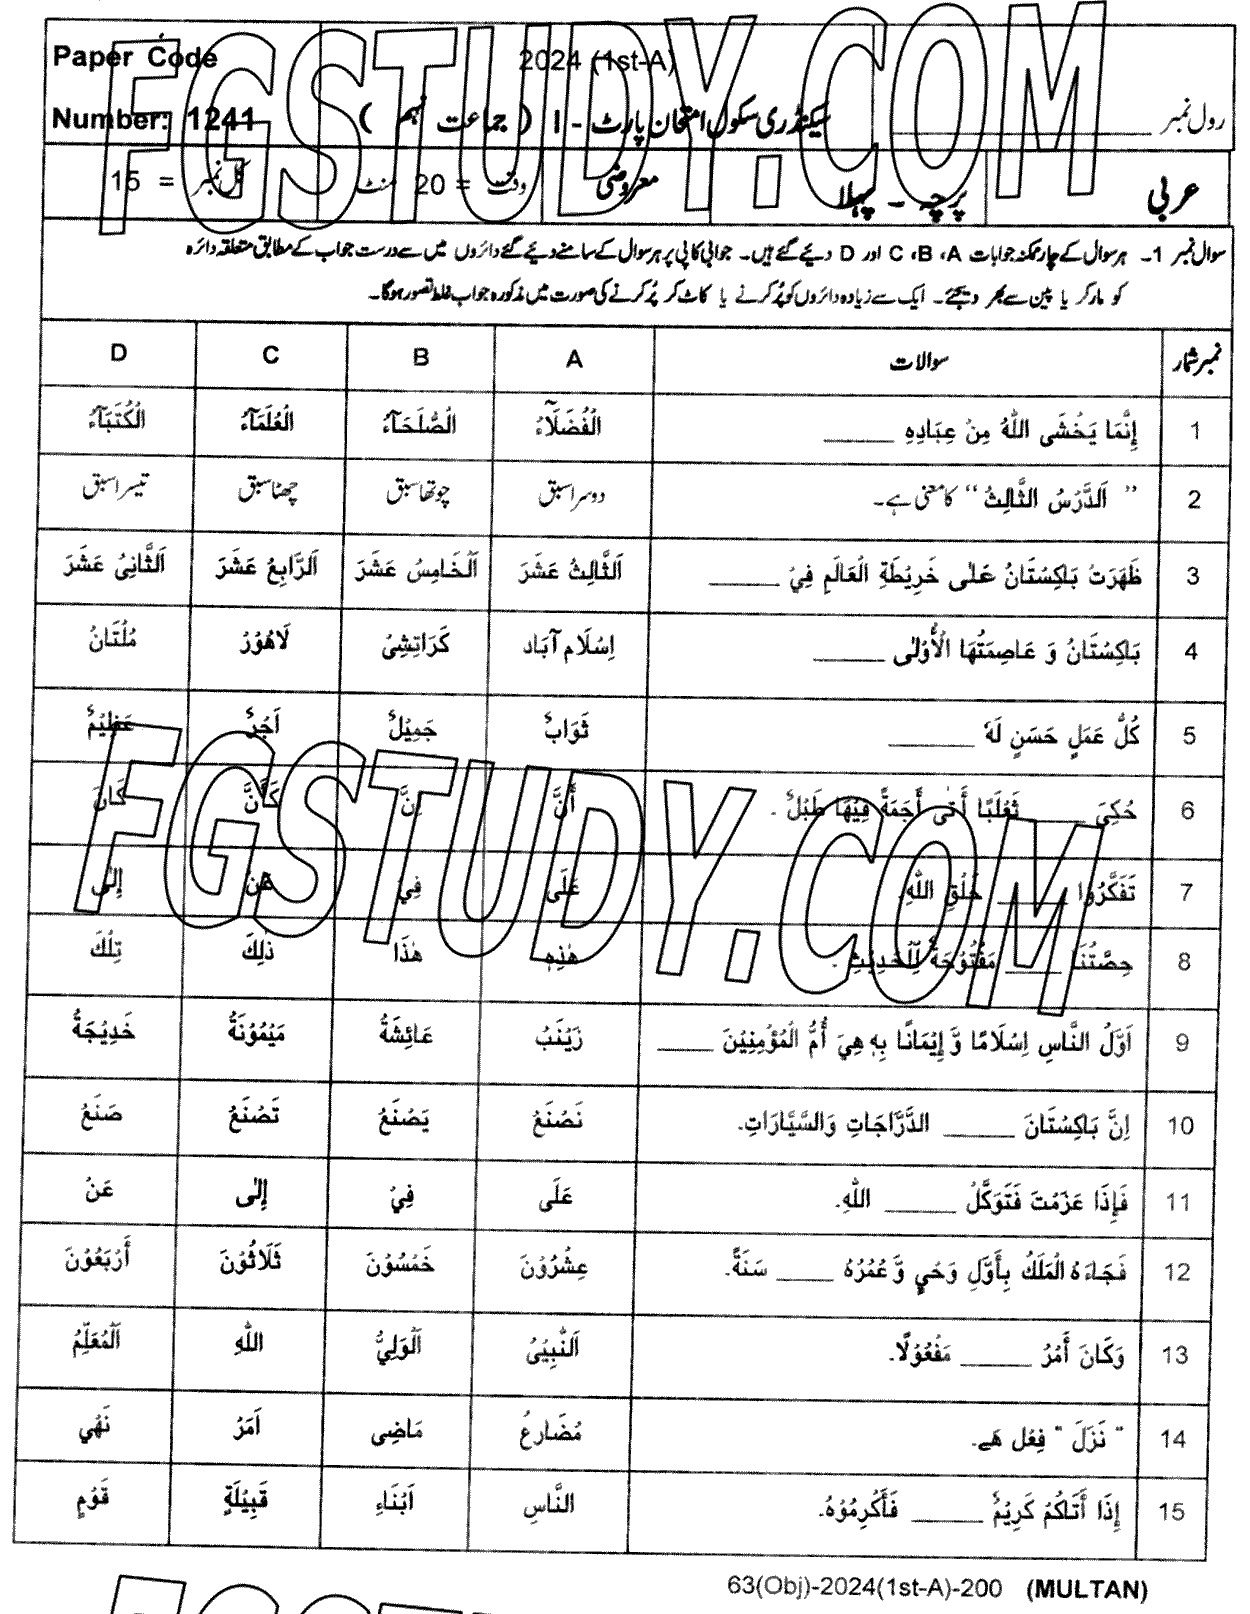 Paper Code
Number: 1241
2024 (1st-A)
سیکنڈری سکول امتحان پارٹ - I ( جماعت نہم )
رول نمبر ____________
عربی
پرچہ ۔ پہلا
معروضی
وقت = 20 منٹ
کل نمبر = 15
سوال نمبر 1۔ ہر سوال کے چار ممکنہ جوابات A، B، C اور D دیئے گئے ہیں۔ جوابی کاپی پر ہر سوال کے سامنے دیئے گئے دائروں میں سے درست جواب کے مطابق متعلقہ دائرہ
کو مارکر یا پین سے بھر دیجئے۔ ایک سے زیادہ دائروں کو پُر کرنے یا کاٹ کر پُر کرنے کی صورت میں مذکورہ جواب غلط تصور ہوگا۔
نمبر شمار سوالات A B C D
1 إِنَّمَا يَخْشَى اللّٰهَ مِنْ عِبَادِهِ _____ الْفُضَلَآءُ الْصُّلَحَآءُ الْعُلَمَآءُ الْكُتَبَآءُ
2 " اَلدَّرْسُ الثَّالِثُ " کا معنی ہے۔ دوسرا سبق چوتھا سبق چھٹا سبق تیسرا سبق
3 ظَهَرَتْ بَاكِسْتَانُ عَلٰى خَرِيْطَةِ الْعَالَمِ فِيْ _____ اَلثَّالِثُ عَشَرَ اَلْخَامِسُ عَشَرَ اَلرَّابِعُ عَشَرَ اَلثَّانِيْ عَشَرَ
4 بَاكِسْتَانُ وَ عَاصِمَتُهَا الْأُوْلٰى _____ اِسْلَام آبَاد كَرَاتِشِيْ لَاهُوْرُ مُلْتَانُ
5 كُلُّ عَمَلٍ حَسَنٍ لَهٗ _____ ثَوَابٌ جَمِيْلٌ اَجْرٌ عَظِيْمٌ
6 حُكِيَ _____ ثَعْلَبًا أَتٰى أَجَمَةً فِيْهَا طَبْلٌ . أَنَّ اِنَّ كَأَنَّ كَانَ
7 تَفَكَّرُوا _____ خَلْقِ اللّٰهِ. عَلَى فِي عَنْ إِلٰى
8 حِصَّتُنَا _____ مَفْتُوْحَةٌ لِلْحَدِيْثِ . هٰذِهِ هٰذَا ذٰلِكَ تِلْكَ
9 اَوَّلُ النَّاسِ اِسْلَامًا وَّ إِيْمَانًا بِهٖ هِيَ أُمُّ الْمُؤْمِنِيْنَ _____ زَيْنَبُ عَائِشَةُ مَيْمُوْنَةُ خَدِيْجَةُ
10 اِنَّ بَاكِسْتَانَ _____ الدَّرَّاجَاتِ وَالسَّيَّارَاتِ. نَصْنَعُ يَصْنَعُ تَصْنَعُ صَنَعُ
11 فَإِذَا عَزَمْتَ فَتَوَكَّلْ _____ اللّٰهِ. عَلَى فِيْ إِلٰى عَنْ
12 فَجَاءَهُ الْمَلَكُ بِأَوَّلِ وَحْيٍ وَّ عُمْرُهُ _____ سَنَةً. عِشْرُوْنَ خَمْسُوْنَ ثَلَاثُوْنَ أَرْبَعُوْنَ
13 وَكَانَ أَمْرُ _____ مَفْعُوْلًا. اَلنَّبِيْیُ اَلْوَلِيُّ اللّٰهِ اَلْمُعَلِّمُ
14 " نَزَلَ " فِعْل ہے۔ مُضَارِعُ مَاضِى اَمْرُ نَهْي
15 إِذَا أَتَاكُمْ كَرِيْمُ _____ فَأَكْرِمُوْهُ. النَّاسِ اَبْنَاءِ قَبِيْلَةٍ قَوْمٍ
63(Obj)-2024(1st-A)-200 (MULTAN)
FGSTUDY.COM
FGSTUDY.COM